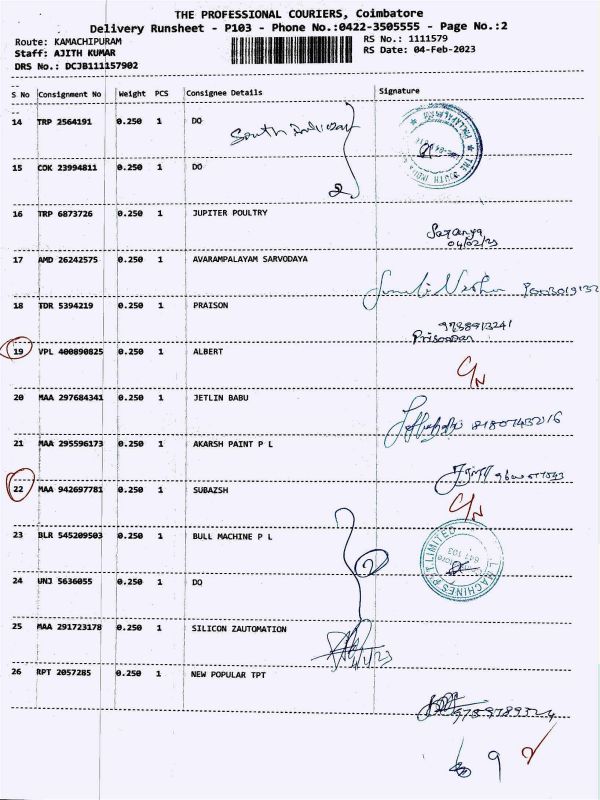 THE PROFESSIONAL COURIERS, Coimbatore
Delivery Runsheet - P103 - Phone No.:0422-3505555 - Page No.:2
Route: KAMACHIPURAM
RS No.: 1111579
Staff: AJITH KUMAR
RS Date: 04-Feb-2023
DRS No.: DCJB111157902
S No Consignment No Weight PCS Consignee Details Signature
14 TRP 2564191 0.250 1 DO
South
15 COK 23994811 0.250 1 DO
2
16 TRP 6873726 0.250 1 JUPITER POULTRY
Saranya
04/02/23
17 AMD 26242575 0.250 1 AVARAMPALAYAM SARVODAYA
18 TDR 5394219 0.250 1 PRAISON
9788913241
19 VPL 400890825 0.250 1 ALBERT
C/N
20 MAA 297684341 0.250 1 JETLIN BABU
21 MAA 295596173 0.250 1 AKARSH PAINT P L
22 MAA 942697781 0.250 1 SUBAZSH
C/N
23 BLR 545209503 0.250 1 BULL MACHINE P L
2
24 UNJ 5636055 0.250 1 DO
25 MAA 291723178 0.250 1 SILICON ZAUTOMATION
26 RPT 2057285 0.250 1 NEW POPULAR TPT
9789789324
9 2